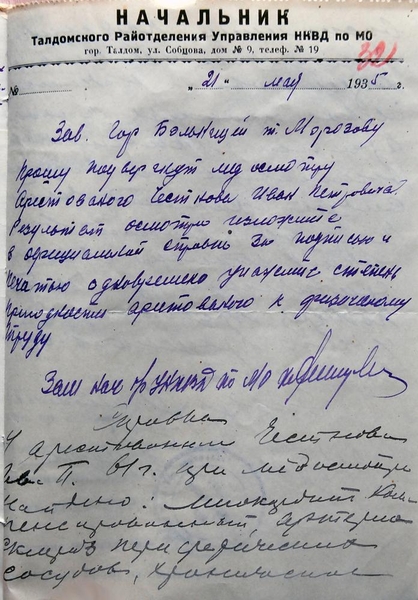 НАЧАЛЬНИК
Талдомского Райотделения Управления НКВД по МО
гор. Талдом, ул. Собцова, дом № 9, телеф. № 19
321
№ "21" мая 1935 г.
Зав. Гор Больницей т. Морозову
Прошу подвергнут медосмотру
Арестованого Честнова Иван Петровича.
Результат осмотра изложите
в официальной справке за подписью и
печатью одновремено
пригодности арестованого к физическому
труду
Зам нач РО УНКВД по МО
Справка
У арестованного Честнова
Ив. П. 61 г. при медосмотре
найдено: миокардит ком
пенсированный, артерио
склероз периферических
сосудов, хронические